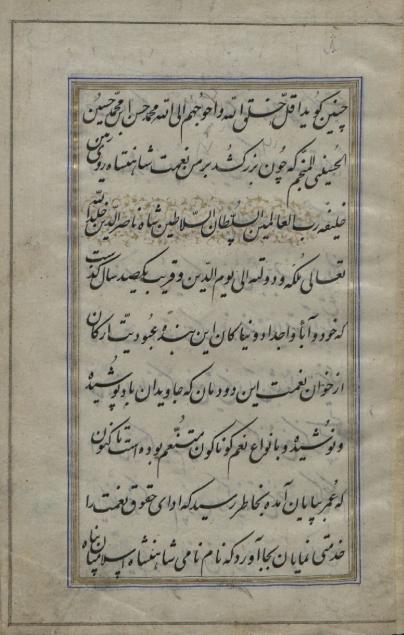 چنین گوید اقلّ خلق الله و احوجهم الی الله محمد حسن ابن محمد حسین
الحسینی المنجم که چون بزرگ شد بر من نعمت شاهنشاه روی زمین
خلیفه رب العالمین السلطان السلاطین شاه ناصر الدین خلد الله
تعالی ملکه و دولته الی یوم الدین و قریب یکصد سال گذشت
که خود و آباء و اجداد و نیاکان این بنده عبودیت ارکان
از خوان نعمت این دودمان که جاویدان باد پوشیده
و نوشیده و بانواع نعم کوناکون متنعم بوده است تاکنون
که عمر بپایان آمده بخاطر رسید که ادای حقوق نعمت را
خدمتی نمایان بجا آورد که نام نامی شاهنشاه اسلامیان پناه